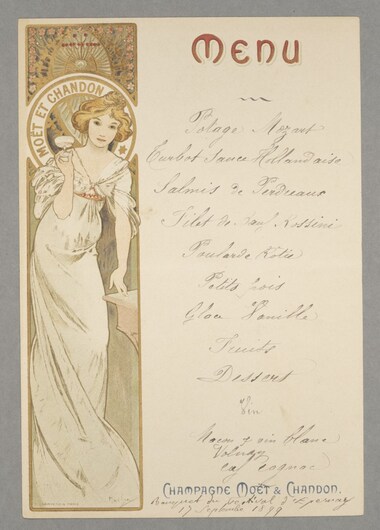 MENU
MOËT ET CHANDON
Potage Mozart
Turbot Sauce Hollandaise
Salmis de Perdreaux
Filet de Bœuf Rossini
Poularde Rotie
Petits pois
Glace Vanille
Fruits
Dessert
Vin
Macon vin blanc
Volnay
café cognac
CHAMPAGNE MOËT & CHANDON.
Banquet du festival d'Epernay
17 Septembre 1899